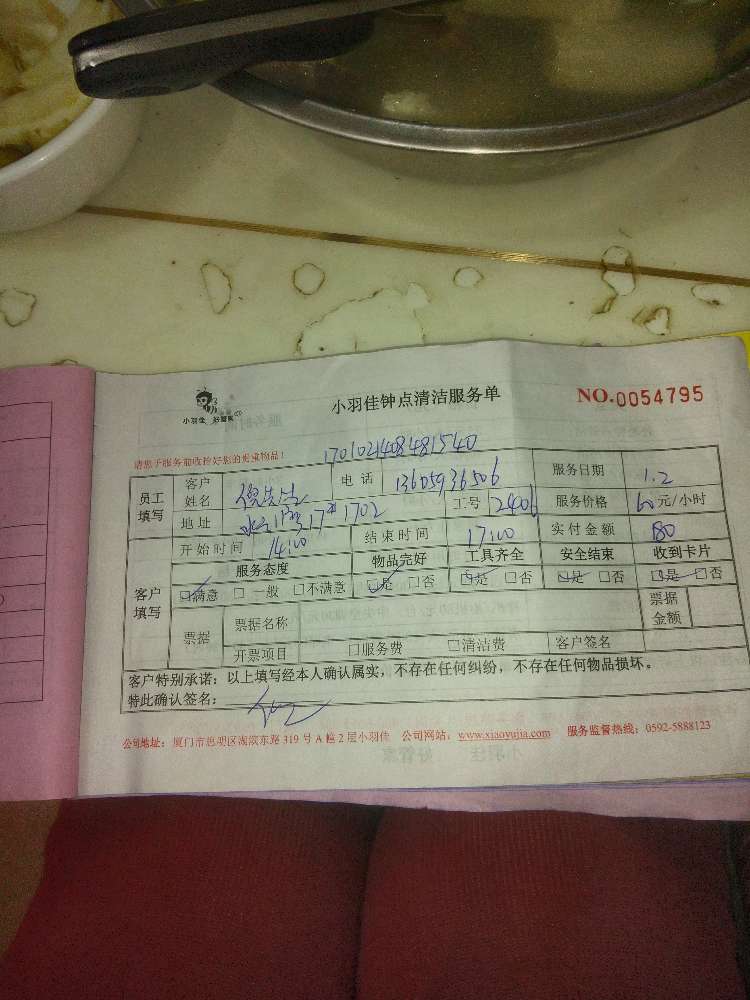 小羽佳 好管家
小羽佳钟点清洁服务单
NO.0054795
请您于服务前收拾好您的贵重物品!
1701021408481540
员工填写 客户姓名 倪先生 电话 13605936506 服务日期 1.2
地址 17# 1702 工号 2406 服务价格 60元/小时
开始时间 14:00 结束时间 17:00 实付金额 180
客户填写 服务态度 物品完好 工具齐全 安全结束 收到卡片
☑满意 □一般 □不满意 ☑是 □否 ☑是 □否 ☑是 □否 ☑是 □否
票据 票据名称 票据金额
开票项目 □服务费 □清洁费 客户签名
客户特别承诺:以上填写经本人确认属实,不存在任何纠纷,不存在任何物品损坏。
特此确认签名:
公司地址:厦门市思明区湖滨东路319号A幢2层小羽佳 公司网站:www.xiaoyujia.com 服务监督热线:0592-5888123